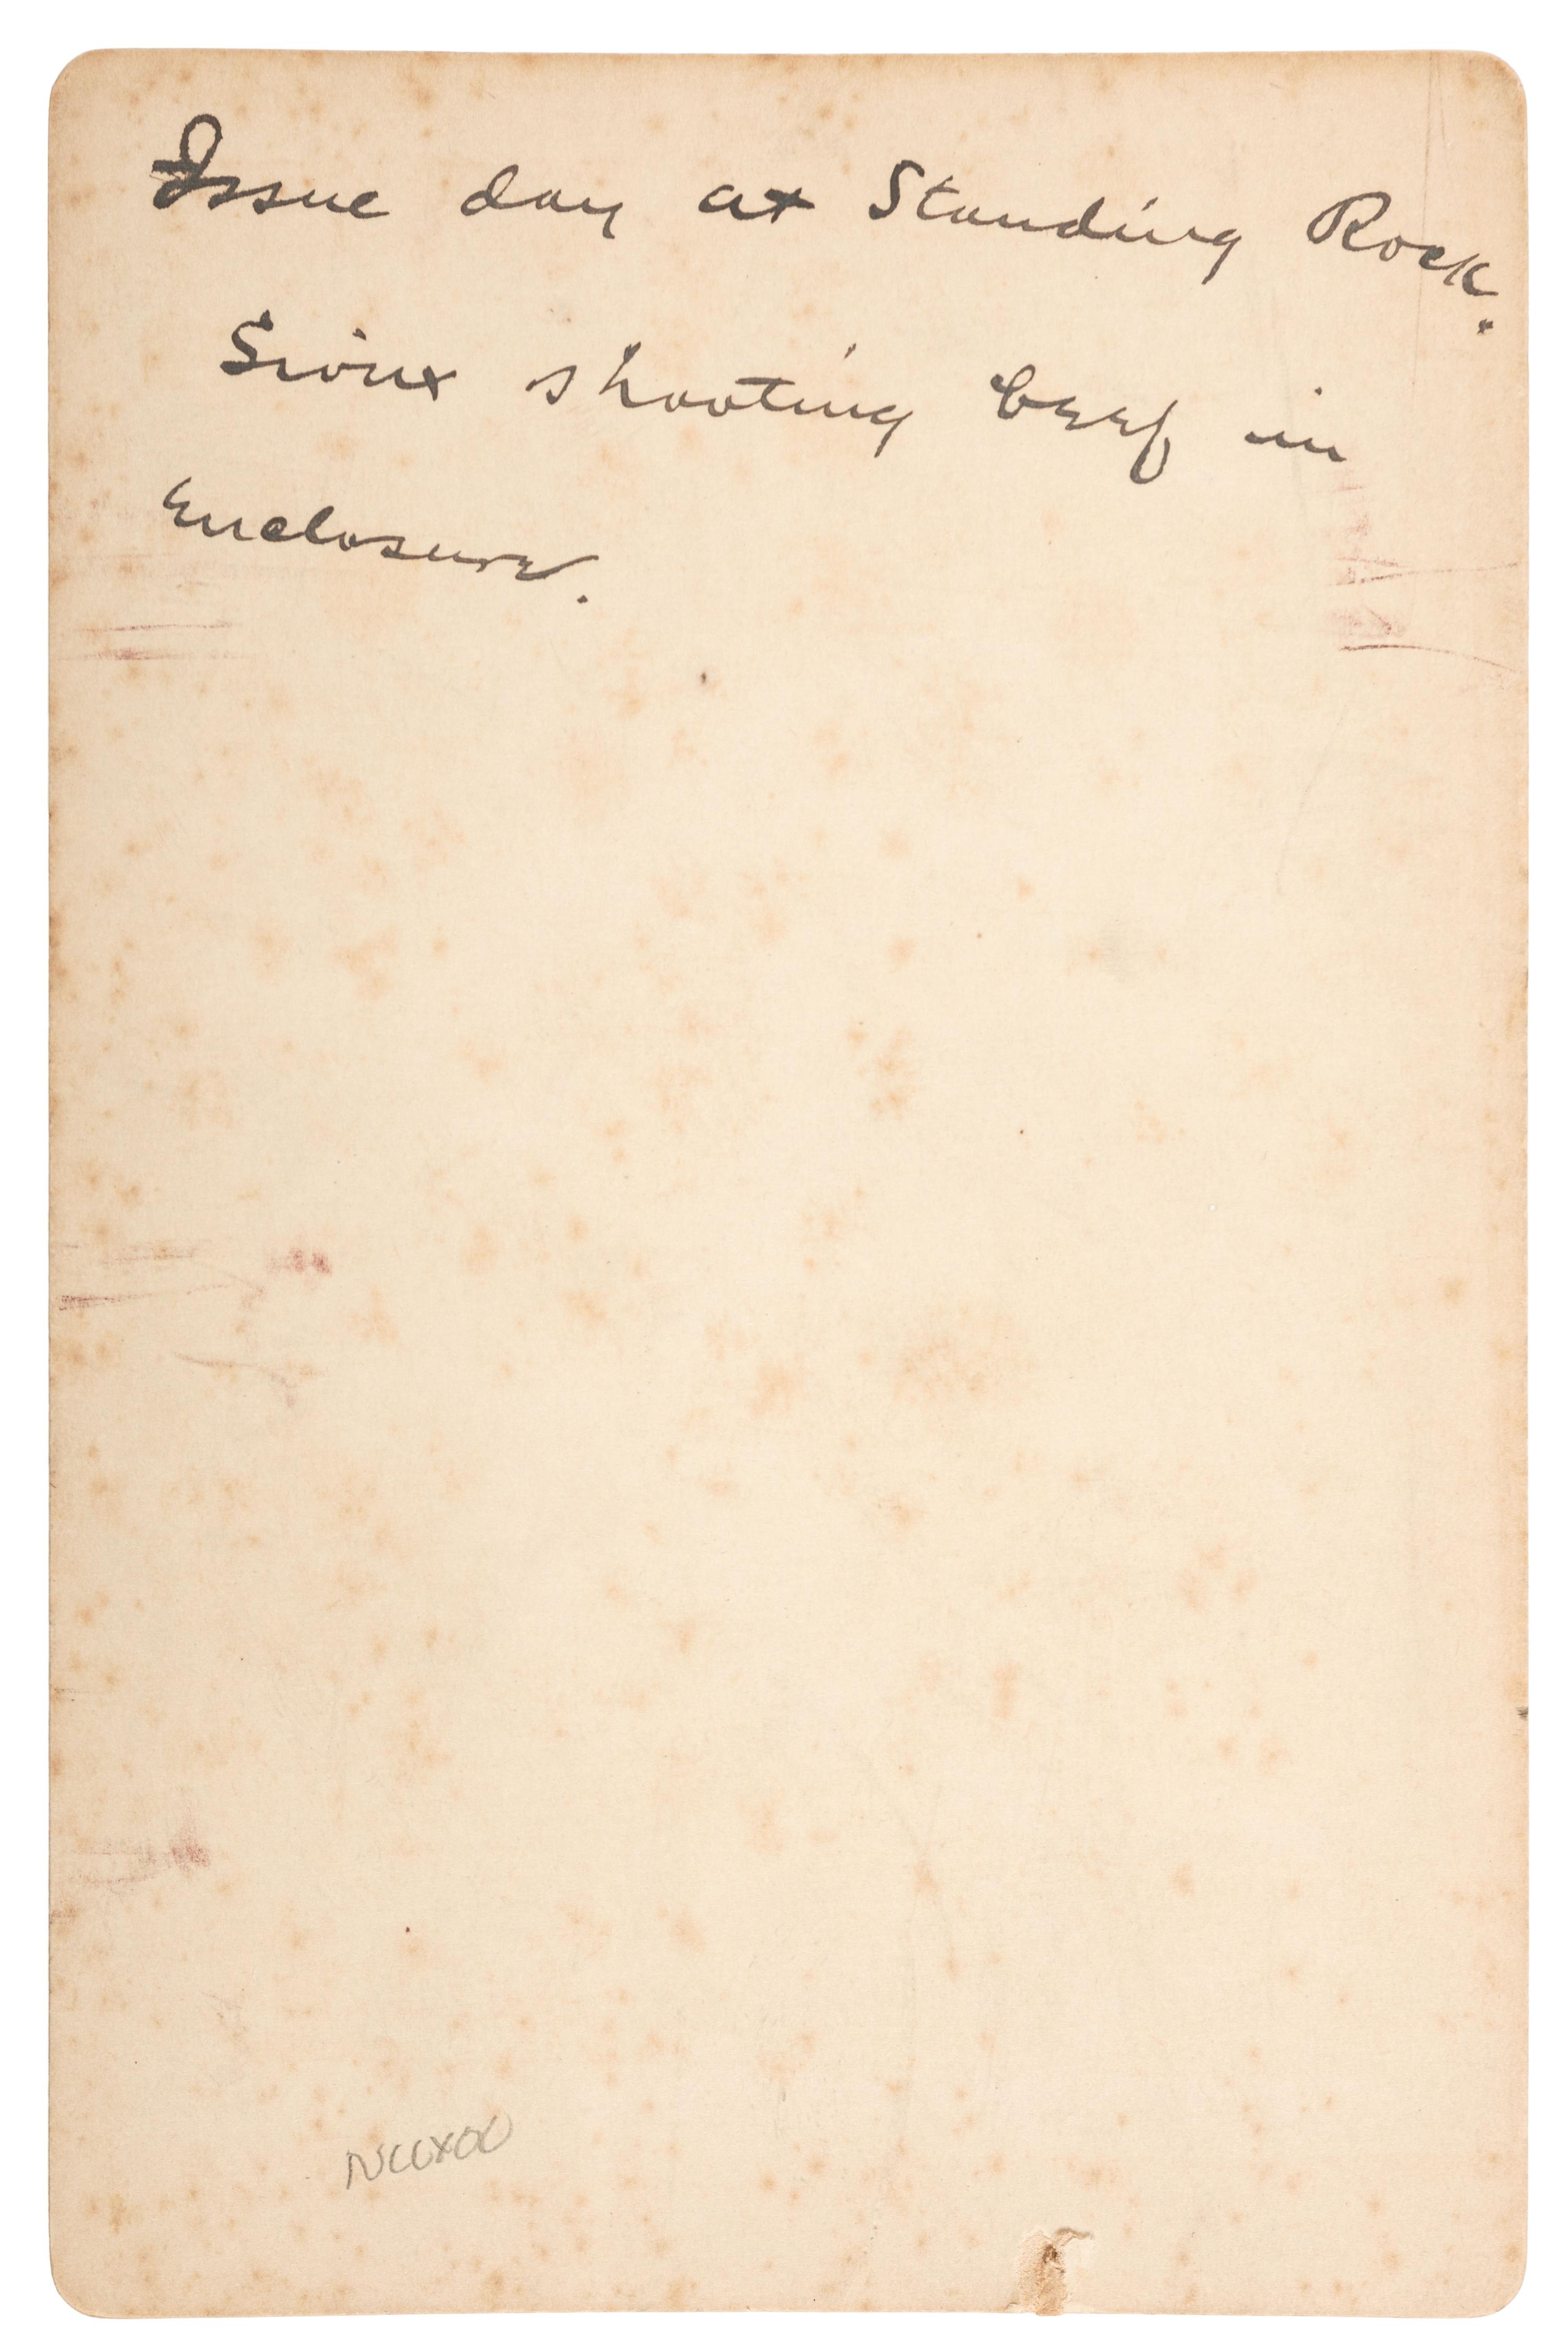 Issue day at Standing Rock.
Sioux shooting beef in
enclosure.